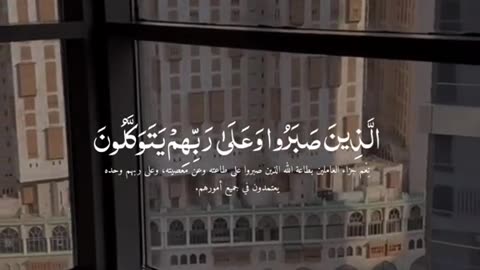 الَّذِينَ صَبَرُوا وَعَلَىٰ رَبِّهِمْ يَتَوَكَّلُونَ
نِعْم جزاء العاملين بطاعة الله الذين صبروا على طاعته وعن معصيته، وعلى ربهم وحده
يعتمدون في جميع أمورهم.